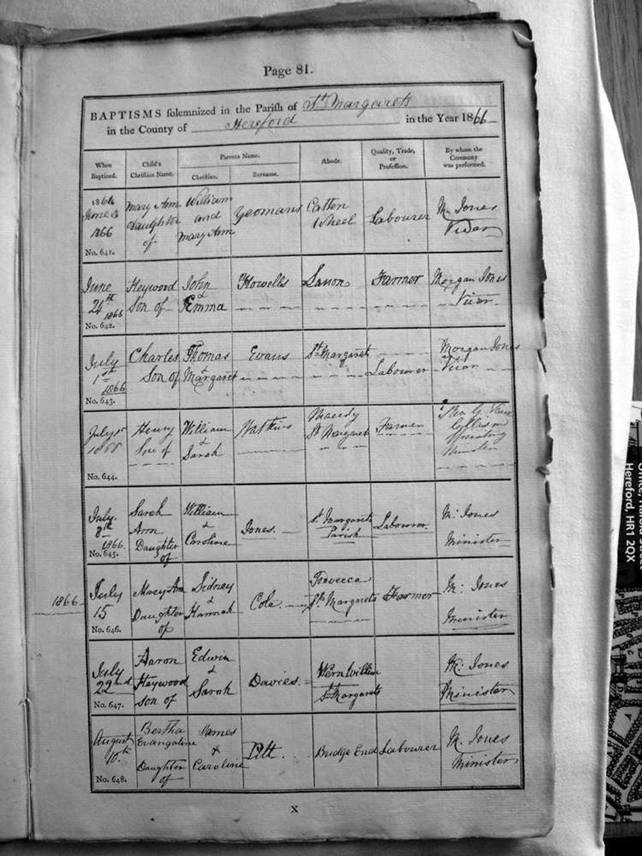 Page 81.
BAPTISMS solemnized in the Parish of St Margarets
in the County of Hereford in the Year 1866
When Baptized. Child's Christian Name. Parents Name. Abode. Quality, Trade, or Profession. By whom the Ceremony was performed.
Christian. Surname.
1866
June 3
1866
No. 641.
Mary Ann
Daughter
of
William
and
Mary Ann
Yeomans
Wheel
Labourer
M. Jones
Vicar
June
24th
1866
No. 642.
Heywood
Son of
John
&
Emma
Howells
Farmer
Morgan Jones
Vicar
July
1st
1866
No. 643.
Charles
Son of
Thomas
&
Margaret
Evans
St Margarets
Labourer
Morgan Jones
Vicar
July 1st
1866
No. 644.
Henry
Son of
William
&
Sarah
Watkins
St Margarets
Farmer
Minister
July
8th
1866
No. 645.
Sarah
Ann
Daughter
of
William
&
Caroline
Jones.
St Margarets
Parish
Labourer
M. Jones
Minister
1866
July
15
No. 646.
Mary Ann
Daughter
of
Sidney
&
Hannah
Cole.
St Margarets
Farmer
M. Jones
Minister
July
22nd
No. 647.
Aaron
Haywood
Son of
Edwin
&
Sarah
Davies.
St Margarets
M. Jones
Minister
August
10th
No. 648.
Bertha
Evangaline
Daughter
of
James
&
Caroline
Pitt.
Bridge End
Labourer
M. Jones
Minister
x
Hereford, HR1 2QX